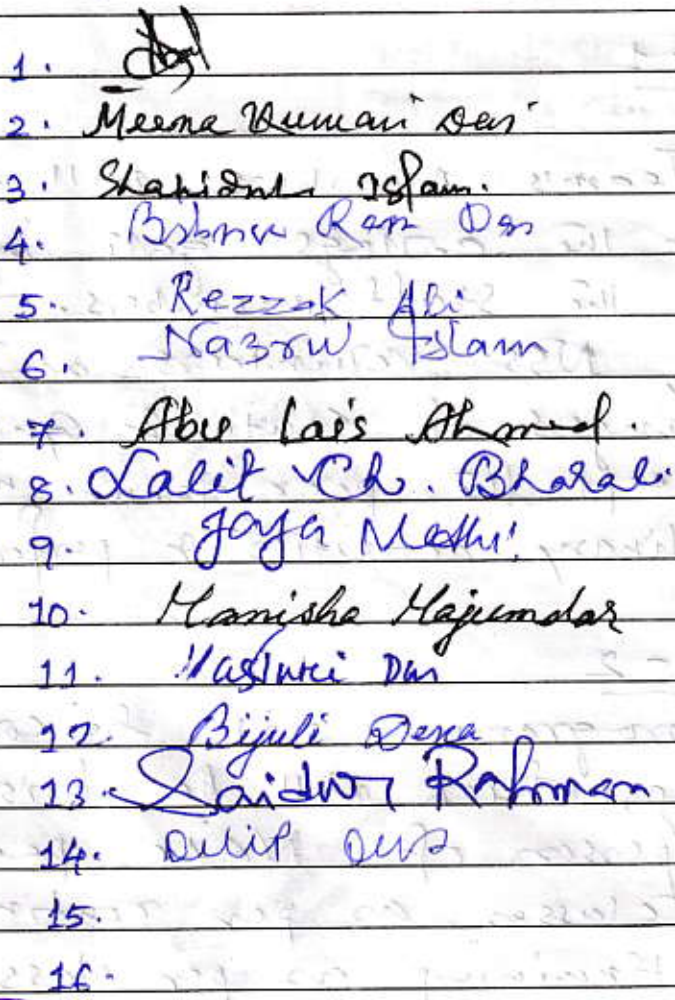 1.
2. Meena Kumari Devi
3. Shahidul Islam.
4. Ram Das
5. Rezzak Ali
6. Nazrul Islam
7. Abu Lais Ahmed.
8. Lalit Ch. Bharali
9. Jaya Medhi
10. Manisha Majumdar
11. Das
12. Bijuli Deka
13. Saidur Rahman
14. Dilip
15.
16.